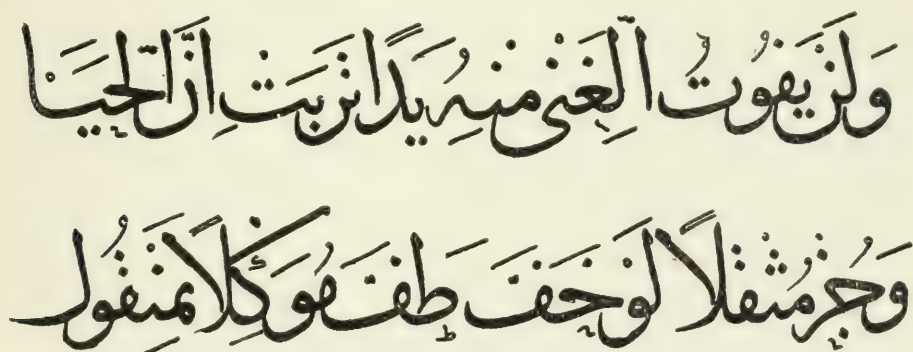 وَلَنْ يَفُوتُ الْغِنٰى مِنْهُ يَدًا تَرِبَتْ اِنَّ الْحَيَا
وَجُزْ مُثْقَلًا لَوْ خَفَّ طَفَّ مُوَكَّلًا بِمَنْقُولِ